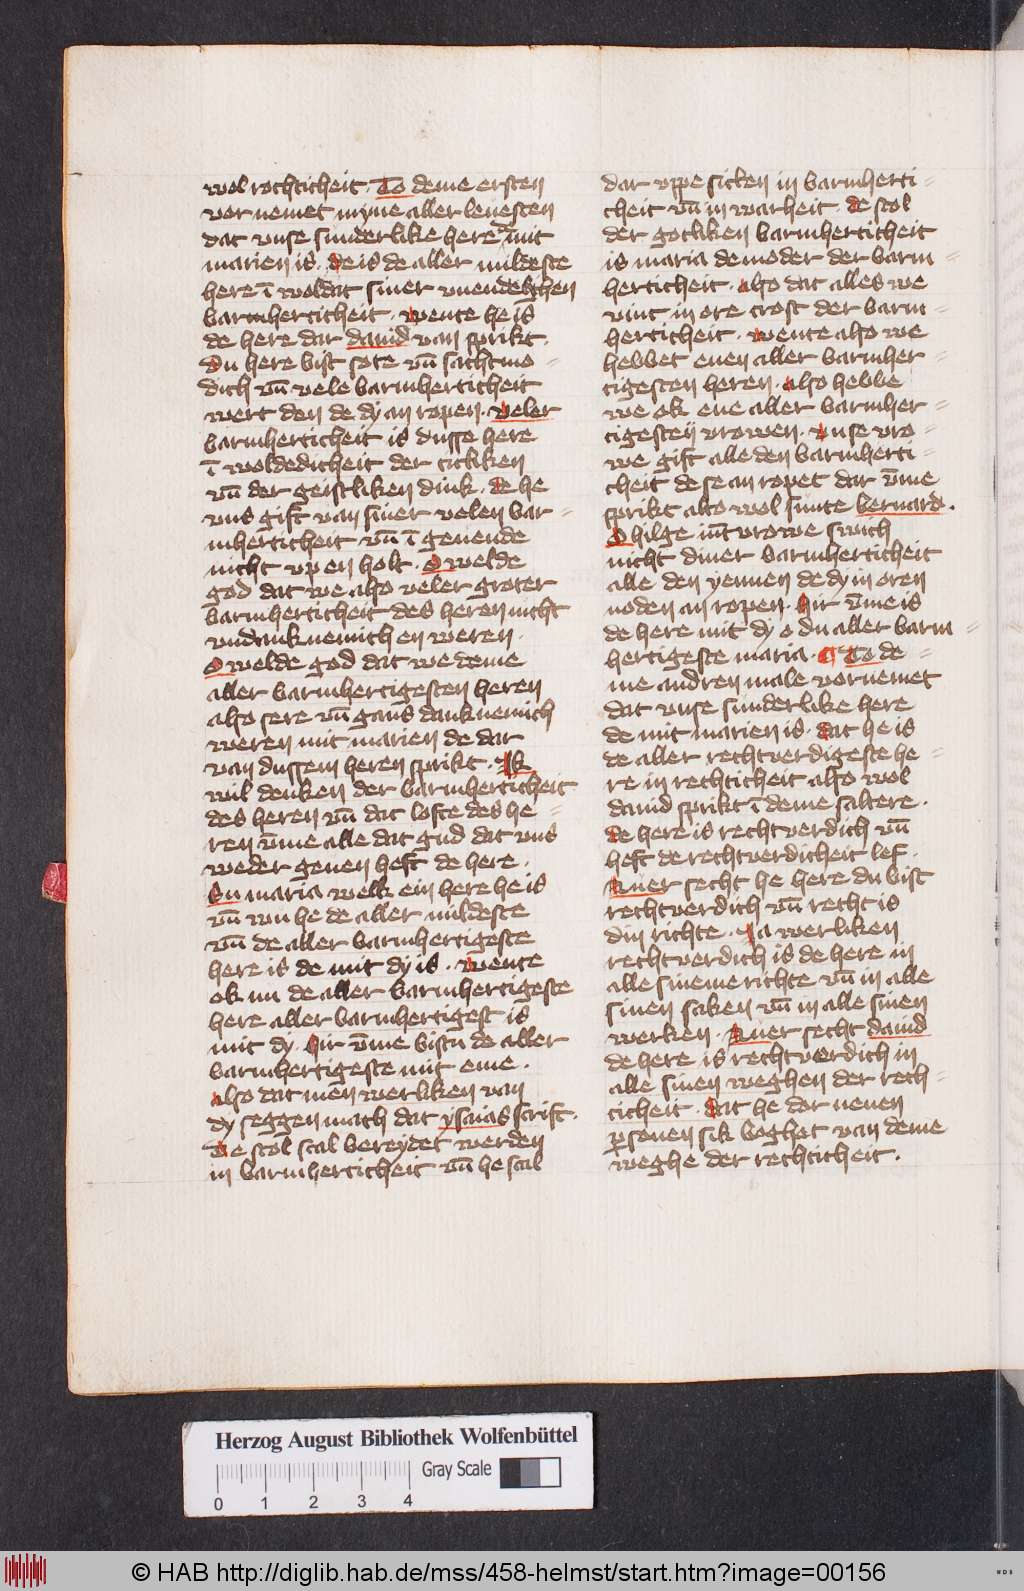 wol rechticheit · To deme ersten
vor nemet myne aller leuesten
dat vnse sunderlike here mit
marien is · de is de aller mildeste
here ī woldat siner vnendelghen
barmherticheit · wente he is
de here dar dauid van sprikt ·
du here bist sote vn̄ sachtmo=
dich vn̄ vele barmherticheit
wert den de dy an ropen · veler
barmherticheit is dusse here
ī woldedicheit der titliken
vn̄ der geistliken dink · de he
vns gift van siner velen bar=
mherticheit vn̄ ī geuende
nicht vp en holt · O welde
god dat we also veler groter
barmherticheit des heren nicht
vndanknemich en weren ·
O welde god dat we deme
aller barmhertigesten heren
also sere vn̄ gans danknemich
weren mit marien de dar
van dussem heren sprikt · Ik
wil denken der barmherticheit
des heren vn̄ dat lofte des he=
ren v̄me alle dat gud dat vns
weder geuen heft de here ·
Su maria welk ein here he is
vn̄ wu he de aller mildeste
vn̄ de aller barmhertigeste
here is de mit dy is · wente
ok nu de aller barmhertigeste
here aller barmhertigest is
mit dy · hir v̄me bistu de aller
barmhertigeste mit eme ·
also dat men werliken van
dy seggen mach dat ysaias scrift ·
De stol scal bereydet werden
in barmherticheit vn̄ he scal
dar vppe sitten in barmherti=
cheit vn̄ in warheit · de stol
der gotliken barmherticheit
is maria de moder der barm=
herticheit · also dat alles we
vint in ore trost der barm=
herticheit · wente also we
hebbet enen aller barmher=
tigesten heren · also hebbe
we ok ene aller barmher=
tigesten vrowen · vnse vro=
we gift alle den barmherti=
cheit de se an ropet dar v̄me
sprikt alto wol sunte bernard ·
O hilge iūt vrowe swich
nicht diner barmherticheit
alle den yennen de dy in oren
noden an ropen · hir v̄me is
de here mit dy o du aller barm=
hertigeste maria · ¶ To de=
me andren male vornemet
dat vnse sunderlike here
de mit marien is · dat he is
de aller rechtverdigeste he=
re in rechticheit also wol
dauid sprikt ī deme saltere ·
de here is rechtverdich vn̄
heft de rechtverdicheit lef ·
Auer secht he here du bist
rechtverdich vn̄ recht is
din richte · Ja werliken
rechtverdich is de here in
alle sineme richte vn̄ in alle
sinen saken vn̄ in alle sinen
werken · Auer secht dauid
de here is rechtverdich in
alle sinen weghen der rech=
ticheit · Dat he dor nenen
ꝑsonen sik boghet van deme
weghe der rechticheit ·
Herzog August Bibliothek Wolfenbüttel
Gray Scale
0 1 2 3 4
© HAB http://diglib.hab.de/mss/458-helmst/start.htm?image=00156